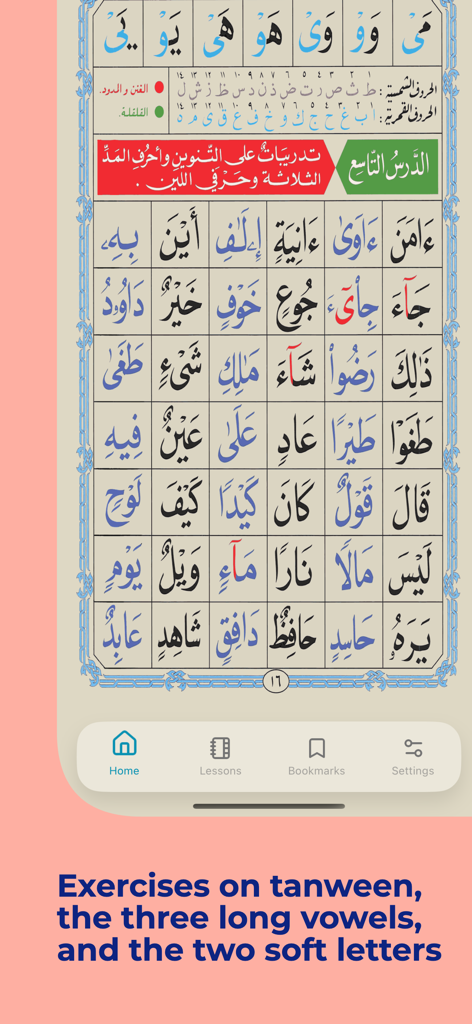 مَىْ وَوْ وَىْ هَوْ هَىْ يَوْ يَىْ
١ ٢ ٣ ٤ ٥ ٦ ٧ ٨ ٩ ١٠ ١١ ١٢ ١٣ ١٤
الحروف الشمسية : ط ث ص ر ت ض ذ ن د س ظ ز ش ل
الغنن والمدود.
١ ٢ ٣ ٤ ٥ ٦ ٧ ٨ ٩ ١٠ ١١ ١٢ ١٣ ١٤
الحروف القمرية : ا ب غ ح ج ك و خ ف ع ق ى م ه
القلقلة.
الدَّرسُ التَّاسِع
تدريبَاتٌ على التَّنوين وأحرُفِ المَدِّ
الثلاثة وحَرفَي اللين .
ءَامَنَ ءَاوَىٰ ءَانِيَةٍ إِۦلَٰفِ أَيْنَ بِهِۦ
جَآءَ جِاْىٓءَ جُوعٍ خَوْفٍ خَيْرٌ دَاوُۥدُ
ذَٰلِكَ رَضُواْ شَآءَ مَٰلِكِ شَىْءٍ طَغَىٰ
طَغَوْا طَيْرًا عَادٍ عَلَىٰ عَيْنٌ فِيهِ
قَالَ قَوْلٌ كَانَ كَيْدًا كَيْفَ لَوْحٍ
لَيْسَ مَالًا نَارًا مَآءٍ وَيْلٌ يَوْمٍ
يَرَهُۥ حَاسِدٍ حَافِظٌ دَافِقٍ شَاهِدٍ عَابِدٌ
١٦
Home Lessons Bookmarks Settings
Exercises on tanween,
the three long vowels,
and the two soft letters